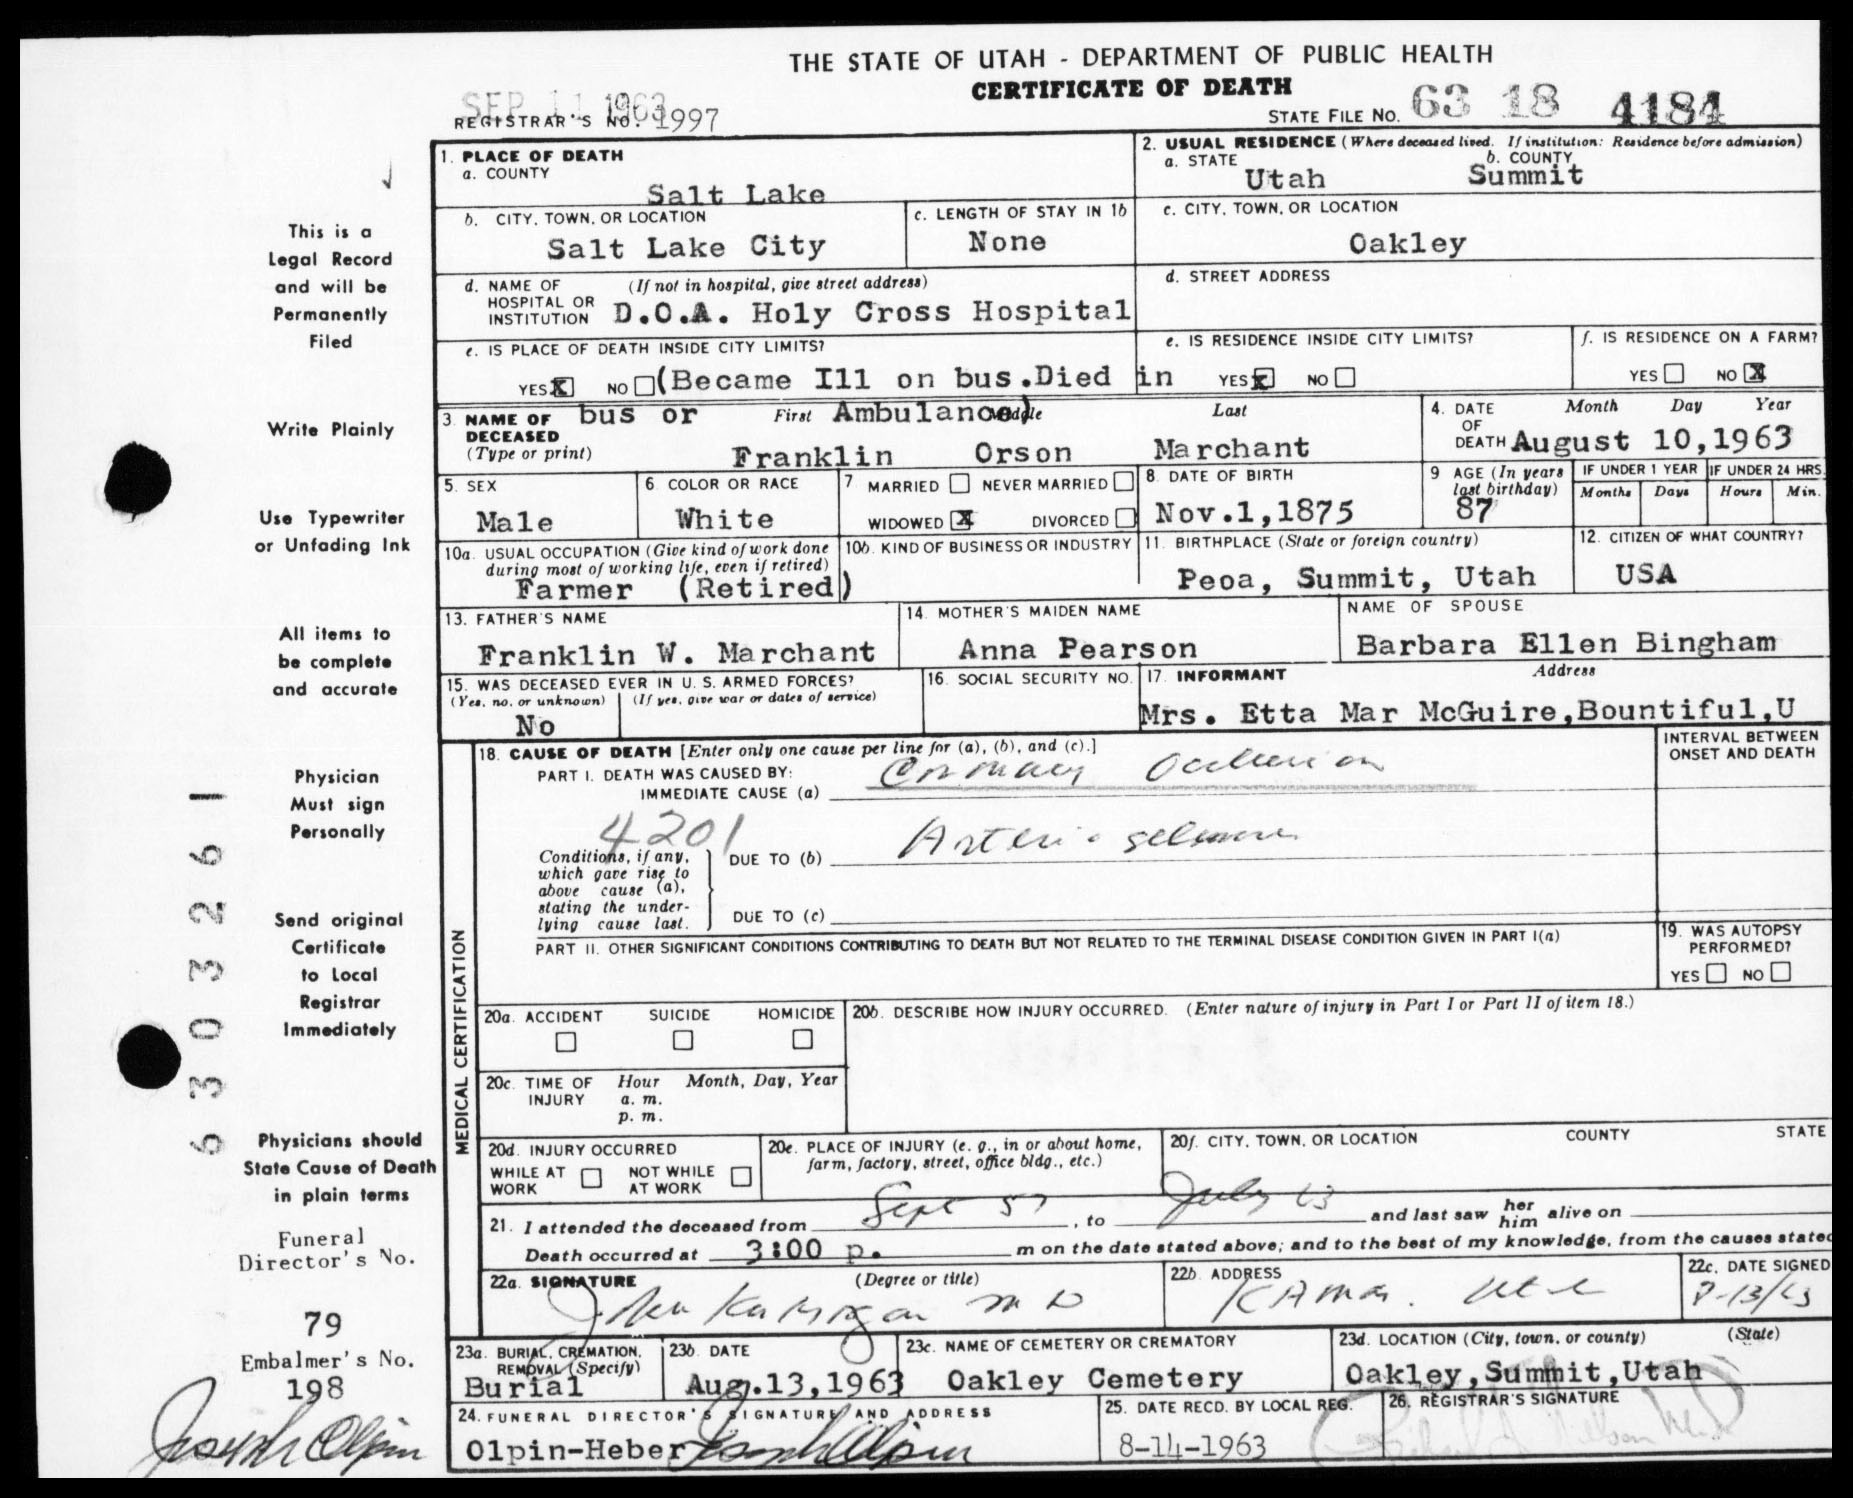 THE STATE OF UTAH - DEPARTMENT OF PUBLIC HEALTH
CERTIFICATE OF DEATH
SEP 11 1963
REGISTRAR'S NO. 1997
STATE FILE NO. 63 18 4184
This is a
Legal Record
and will be
Permanently
Filed
Write Plainly
Use Typewriter
or Unfading Ink
All items to
be complete
and accurate
Physician
Must sign
Personally
Send original
Certificate
to Local
Registrar
Immediately
Physicians should
State Cause of Death
in plain terms
Funeral
Director's No.
79
Embalmer's No.
198
Joseph Olpin
6303261
1. PLACE OF DEATH
a. COUNTY
Salt Lake
2. USUAL RESIDENCE (Where deceased lived. If institution: Residence before admission)
a. STATE b. COUNTY
Utah Summit
b. CITY, TOWN, OR LOCATION
Salt Lake City
c. LENGTH OF STAY IN 1b
None
c. CITY, TOWN, OR LOCATION
Oakley
d. NAME OF (If not in hospital, give street address)
HOSPITAL OR
INSTITUTION D.O.A. Holy Cross Hospital
d. STREET ADDRESS
e. IS PLACE OF DEATH INSIDE CITY LIMITS?
YES X NO (Became Ill on bus.Died in
bus or Ambulance)
e. IS RESIDENCE INSIDE CITY LIMITS?
YES X NO
f. IS RESIDENCE ON A FARM?
YES NO X
3. NAME OF First Middle Last
DECEASED
(Type or print) Franklin Orson Marchant
4. DATE Month Day Year
OF
DEATH August 10,1963
5. SEX
Male
6. COLOR OR RACE
White
7. MARRIED NEVER MARRIED
WIDOWED X DIVORCED
8. DATE OF BIRTH
Nov.1,1875
9 AGE (In years
last birthday)
87
IF UNDER 1 YEAR
Months Days
IF UNDER 24 HRS.
Hours Min.
10a. USUAL OCCUPATION (Give kind of work done
during most of working life, even if retired)
Farmer (Retired)
10b. KIND OF BUSINESS OR INDUSTRY
11. BIRTHPLACE (State or foreign country)
Peoa, Summit, Utah
12. CITIZEN OF WHAT COUNTRY?
USA
13. FATHER'S NAME
Franklin W. Marchant
14. MOTHER'S MAIDEN NAME
Anna Pearson
NAME OF SPOUSE
Barbara Ellen Bingham
15. WAS DECEASED EVER IN U. S. ARMED FORCES?
(Yes, no, or unknown) (If yes, give war or dates of service)
No
16. SOCIAL SECURITY NO.
17. INFORMANT Address
Mrs. Etta Mar McGuire,Bountiful,U
MEDICAL CERTIFICATION
18. CAUSE OF DEATH [Enter only one cause per line for (a), (b), and (c).]
PART I. DEATH WAS CAUSED BY:
IMMEDIATE CAUSE (a) Coronary Occlusion
INTERVAL BETWEEN
ONSET AND DEATH
4201
Conditions, if any,
which gave rise to
above cause (a),
stating the under-
lying cause last.
DUE TO (b) Arterio sclerosis
DUE TO (c)
PART II. OTHER SIGNIFICANT CONDITIONS CONTRIBUTING TO DEATH BUT NOT RELATED TO THE TERMINAL DISEASE CONDITION GIVEN IN PART I(a)
19. WAS AUTOPSY
PERFORMED?
YES NO
20a. ACCIDENT SUICIDE HOMICIDE
20b. DESCRIBE HOW INJURY OCCURRED. (Enter nature of injury in Part I or Part II of item 18.)
20c. TIME OF Hour Month, Day, Year
INJURY a. m.
p. m.
20d. INJURY OCCURRED
WHILE AT WORK NOT WHILE AT WORK
20e. PLACE OF INJURY (e. g., in or about home,
farm, factory, street, office bldg., etc.)
20f. CITY, TOWN, OR LOCATION COUNTY STATE
21. I attended the deceased from Sept 57, to July 63 and last saw her him alive on
Death occurred at 3:00 p. m on the date stated above; and to the best of my knowledge, from the causes stated
22a. SIGNATURE (Degree or title)
M D
22b. ADDRESS
Kamas. Utah
22c. DATE SIGNED
8-13/63
23a. BURIAL, CREMATION,
REMOVAL (Specify)
Burial
23b. DATE
Aug.13,1963
23c. NAME OF CEMETERY OR CREMATORY
Oakley Cemetery
23d. LOCATION (City, town, or county) (State)
Oakley,Summit,Utah
24. FUNERAL DIRECTOR'S SIGNATURE AND ADDRESS
Olpin-Heber Joseph Olpin
25. DATE RECD. BY LOCAL REG.
8-14-1963
26. REGISTRAR'S SIGNATURE